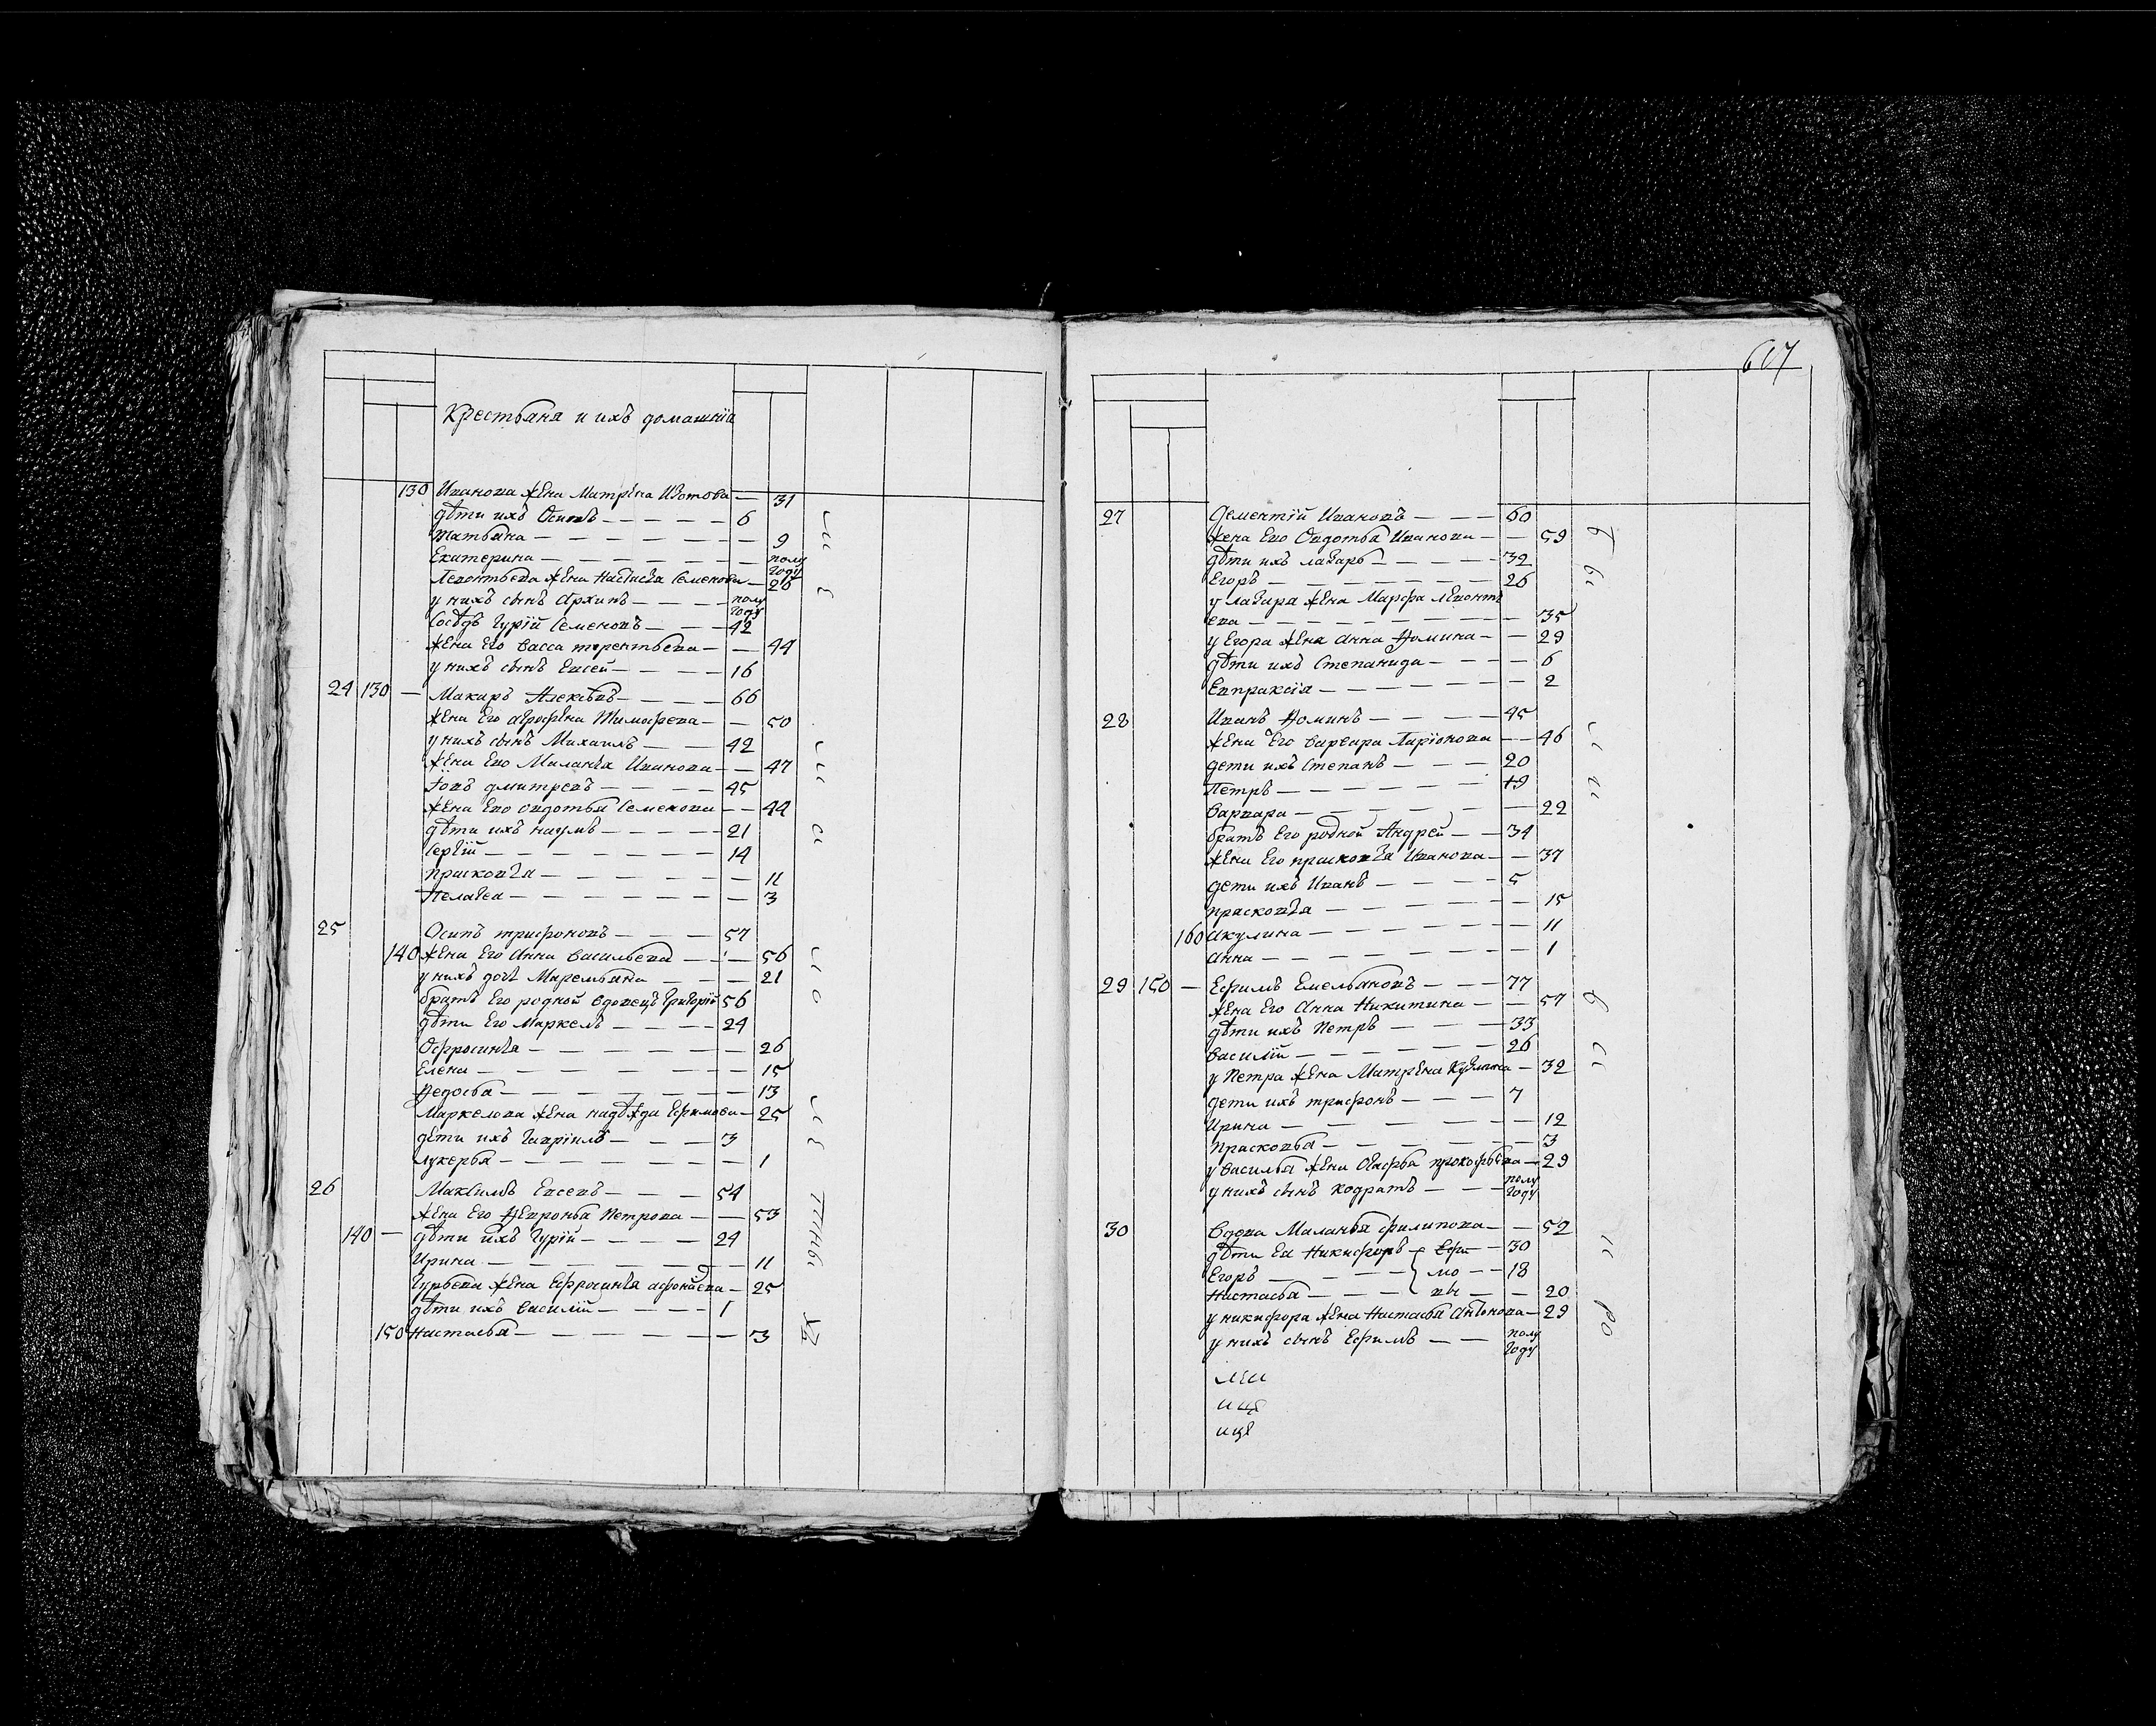 Крестьяня и ихъ домашнïя
130 Иванова жена Матрена Изотова — 31
дѣти ихъ Осипъ — 6
татьяна — 9
Екатерина — полугоду
Левонтьева жена Настасья Семенова — 26
у нихъ сынъ Архипъ — полугоду
Сосѣдъ Гурïй Семеновъ — 42
жена Его васса терентьева — 44
у нихъ сынъ Евсей — 16
24 130 — Макаръ Алексѣевъ — 66
жена Его Агрофена Тимофева — 50
у нихъ сынъ Михаилъ — 42
жена Его Маланья Иванова — 47
Iовъ дмитревъ — 45
жена Его овдотья Семенова — 44
дѣти ихъ наумъ — 21
Сергïй — 14
прасковья — 11
Пелагея — 3
25 Осипъ трифоновъ — 57
140 жена Его Анна васильева — 56
у нихъ дочь Маремьяна — 21
братъ Его родной вдовецъ Григорïй 56
дѣти Его Маркелъ — 24
Офросинья — 26
Елена — 15
Федосья — 13
Маркелова жена надѣжда Ефимова — 25
дѣти ихъ Гаврiилъ — 3
лукерья — 1
26 Максимъ Евсевъ — 54
жена Его Февронья Петрова — 53
140 — дѣти ихъ Гурïй — 24
Ирина — 11
Гурьева жена Ефросинья афонасева — 25
дѣти ихъ василïй — 1
150 Настасья — 3
617
27 Дементïй Ивановъ — 60
жена Его Овдотья Иванова — 59
дѣти ихъ лазарь — 32
Егоръ — 26
у лазаря жена Марфа левонть
ева — 35
у Егора жена Анна Фомина — 29
дѣти ихъ Степанида — 6
Евпраксïя — 2
28 Иванъ Фоминъ — 45
жена Его варвара Ларïонова — 46
дети ихъ Степанъ — 20
Петръ — 19
варвара — 22
братъ Его родной Андрей — 34
жена Его прасковья Иванова — 37
дети ихъ Иванъ — 5
прасковья — 15
160 Акулина — 11
Анна — 1
29 150 — Ефимъ Емельяновъ — 77
жена Его Анна Никитина — 57
дѣти ихъ Петръ — 33
василïй — 26
у Петра жена Матрена Кузмина — 32
дети ихъ трифонъ — 7
Ирина — 12
Прасковья — 3
у василья жена Агафья прокофьева — 29
у нихъ сынъ кодратъ — полугоду
30 вдова Маланья филипова — 52
дѣти Ея Никифоръ } Ефи — 30
Егоръ — } мо — 18
Настасья — } вы — 20
у никифора жена Настасья Антонова — 29
у нихъ сынъ Ефимъ — полугоду